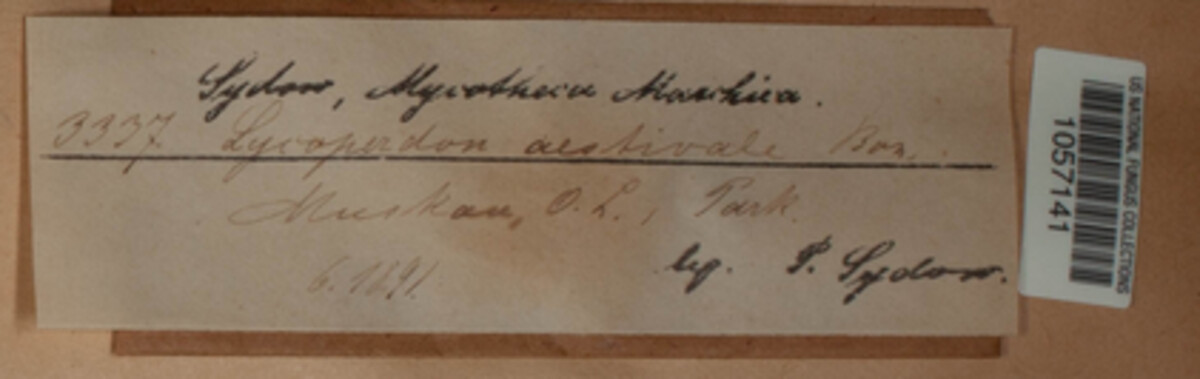 Sydow, Mycotheca Marchica.
3337. Lycoperdon aestivale Bon.
Muskau, O. L., Park.
6. 1891.
leg. P. Sydow.
US NATIONAL FUNGUS COLLECTIONS
1057141